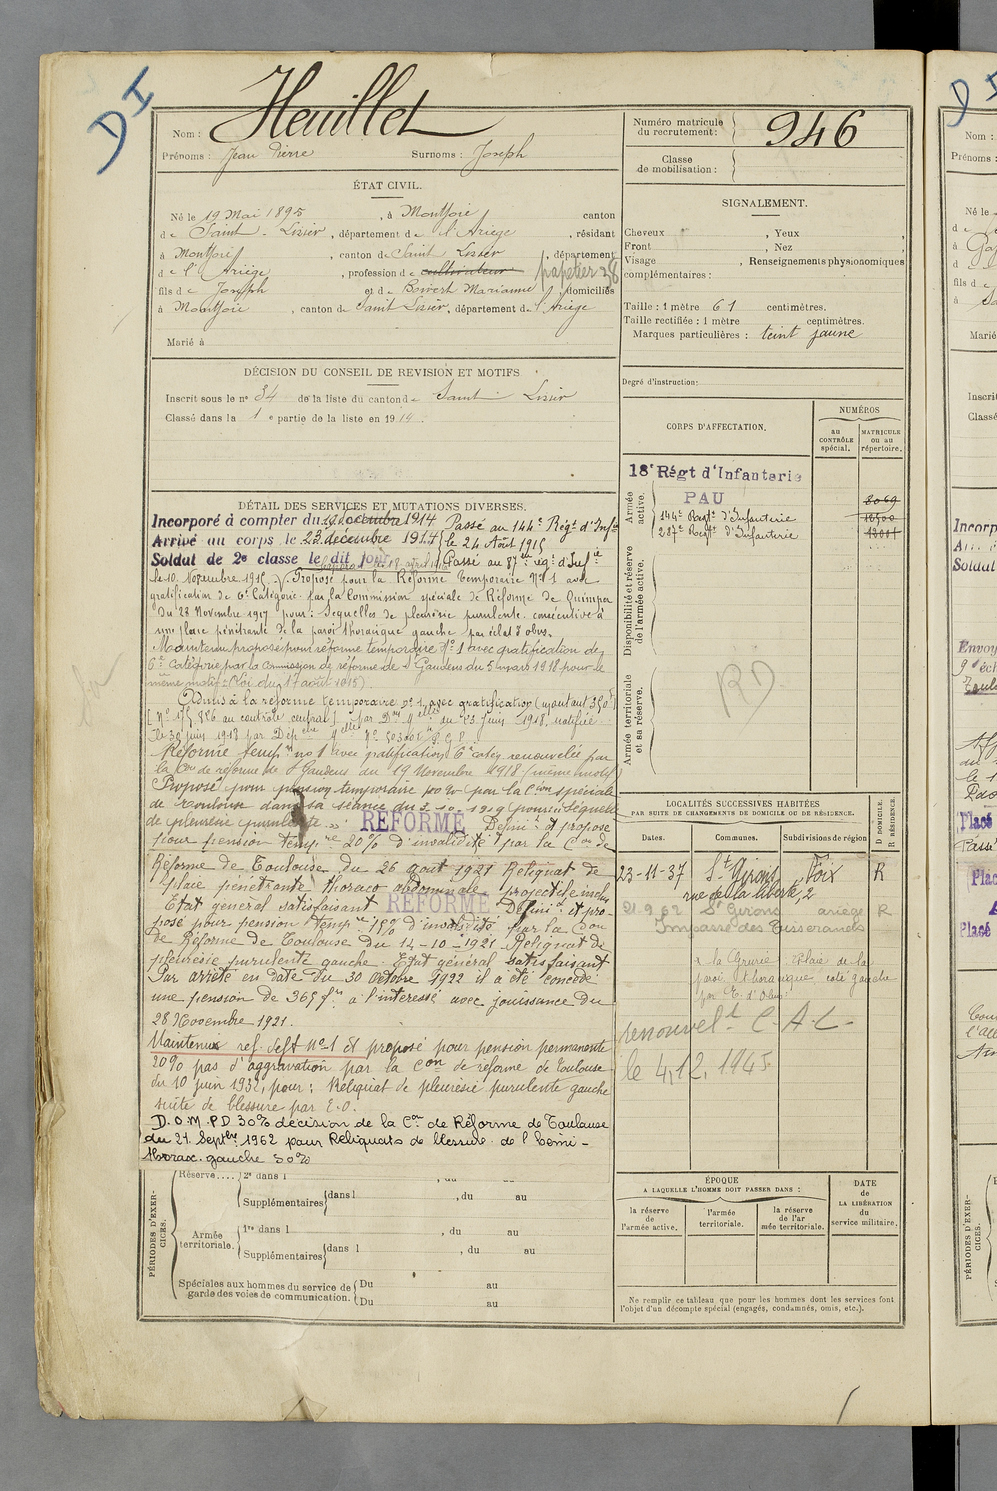 D I
Nom : Heuillet
Prénoms : Jean Pierre Surnoms : Joseph
Numéro matricule du recrutement : 946
Classe de mobilisation :
ÉTAT CIVIL.
Né le 19 Mai 1895, à Montjoie canton
de Saint-Lizier, département de l'Ariège, résidant
à Montjoie, canton de Saint Lizier, département
de l'Ariège, profession de cultivateur papetier 28
fils de Joseph et de Marianne, domiciliés
à Montjoie, canton de Saint Lizier, département de l'Ariège
Marié à
SIGNALEMENT.
Cheveux , Yeux ,
Front , Nez
Visage , Renseignements physionomiques
complémentaires :
Taille : 1 mètre 61 centimètres.
Taille rectifiée : 1 mètre centimètres.
Marques particulières : teint jaune
DÉCISION DU CONSEIL DE REVISION ET MOTIFS
Inscrit sous le n° 34 de la liste du canton de Saint Lizier
Classé dans la 1e partie de la liste en 1914.
Degré d'instruction:
CORPS D'AFFECTATION.
NUMÉROS
au CONTRÔLE spécial.
MATRICULE ou au répertoire.
Armée active.
18e Régt d'Infanterie
PAU
8069
144e Régt d'Infanterie 10500
287e Régt d'Infanterie
Disponibilité et réserve de l'armée active.
Armée territoriale et sa réserve.
RD
DÉTAIL DES SERVICES ET MUTATIONS DIVERSES.
Incorporé à compter du décembre 1914 Passé au 144e Régt d'Infie
Arrivé au corps le 23 décembre 1914 le 24 Août 1915
Soldat de 2e classe le dit jour Passé au 87e régt d'Infie
le 10 Novembre 1915. Proposé pour la Réforme Temporaire N° 1 avec
gratification de 6e Catégorie par la Commission spéciale de Réforme de Quimper
du 28 Novembre 1917 pour : Sequelles de pleurésie purulente consécutive à
une plaie pénétrante de la paroi thoracique gauche par éclat d'obus.
Maintenu proposé pour réforme temporaire N° 1 avec gratification de
6e catégorie par la Commission de réforme de St Gaudens du 5 mars 1918 pour le
même motif (Loi du 17 août 1915)
Admis à la réforme temporaire n° 1, avec gratification (montant 350f)
au contrôle central] par Don Mielle du 13 Juin 1918, notifiée
le 30 juin 1918 par Dépche Mielle
Réformé tempre n° 1 avec gratification 6e catég renouvelée par
la Con de réforme de St Gaudens du 19 Novembre 1918 (même motif)
Proposé pour pension temporaire 20% par la Con spéciale
de Toulouse dans sa séance du 3.10.1919 pour : "Séquelles
de pleurésie purulente." RÉFORMÉ Définit et proposé
pour pension tempre 20% d'invalidité par la Con de
Réforme de Toulouse du 26 août 1921 Reliquat de
plaie pénétrante thoraco abdominale projectile inclus
Etat général satisfaisant RÉFORMÉ Définit et pro-
posé pour pension tempre 15% d'invalidité par la Con
de Réforme de Toulouse du 14-10-1921 Reliquat de
pleurésie purulente gauche. Etat général satisfaisant
Par arrêté en date du 30 octobre 1922 il a été concédé
une pension de 365f à l'intéressé avec jouissance du
28 Novembre 1921.
Maintenu réf. deft n° 1 et proposé pour pension permanente
20% pas d'aggravation par la Con de réforme de Toulouse
du 10 juin 1932, pour : Reliquat de pleurésie purulente gauche
suite de blessure par E.O.
D.O.M.PD 30% décision de la Con de Réforme de Toulouse
du 21 Septbre 1962 pour Reliquats de blessure de l'hémi-
thorax gauche 30%
LOCALITÉS SUCCESSIVES HABITÉES
PAR SUITE DE CHANGEMENTS DE DOMICILE OU DE RÉSIDENCE.
Dates. Communes. Subdivisions de région D DOMICILE. R RÉSIDENCE.
23-11-37 St Girons Foix R
rue de la liberté, 2
21.9.62 St Girons ariège R
Impasse des Tisserands
Plaie de la
paroi thoracique coté gauche
par E. d'Obus
renouvelt C-A-C-
le 4.12.1945
PÉRIODES D'EXERCICES.
Réserve.... 2e dans l , du au
Supplémentaires dans l , du au
Armée territoriale. 1re dans l , du au
Supplémentaires dans l , du au
Spéciales aux hommes du service de garde des voies de communication. Du au
Du au
ÉPOQUE
A LAQUELLE L'HOMME DOIT PASSER DANS :
la réserve de l'armée active.
l'armée territoriale.
la réserve de l'armée territoriale.
DATE de LA LIBÉRATION du service militaire.
Ne remplir ce tableau que pour les hommes dont les services font
l'objet d'un décompte spécial (engagés, condamnés, omis, etc.).